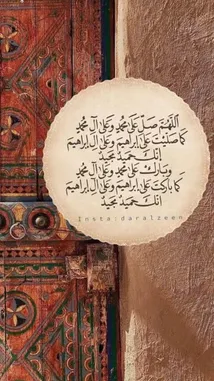 اللهم صل على محمد وعلى آل محمد
كما صليت على إبراهيم وعلى آل إبراهيم
إنك حميد مجيد
وبارك على محمد وعلى آل محمد
كما باركت على إبراهيم وعلى آل إبراهيم
انك حميد مجيد
Insta:daralzeen